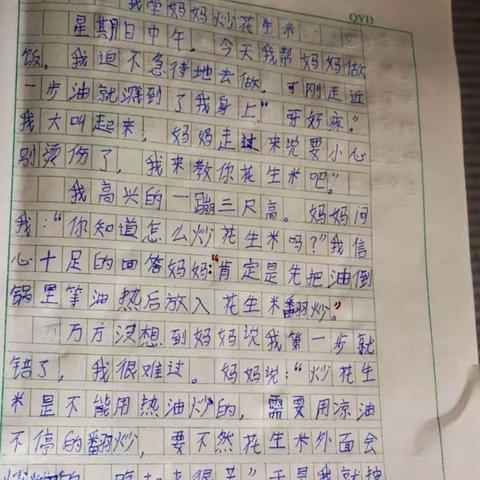 我学妈妈炒花生米
QYD
星期日中午，今天我帮妈妈做
饭。我迫不急待地去做，可刚走近
一步油就溅到了我身上“呀好疼。”
我大叫起来，妈妈走过来说要小心
别烫伤了，我来教你花生米吧。”
我高兴的一蹦三尺高。妈妈问
我：“你知道怎么炒花生米吗？”我信
心十足的回答妈妈：“肯定是先把油倒
锅里等油热后放入花生米翻炒。”
万万没想到妈妈说我第一步就
错了，我很难过。妈妈说：“炒花生
米是不能用热油炒的，需要用凉油
不停的翻炒，要不然花生米外面会
的，吃起来很苦”于是我就按